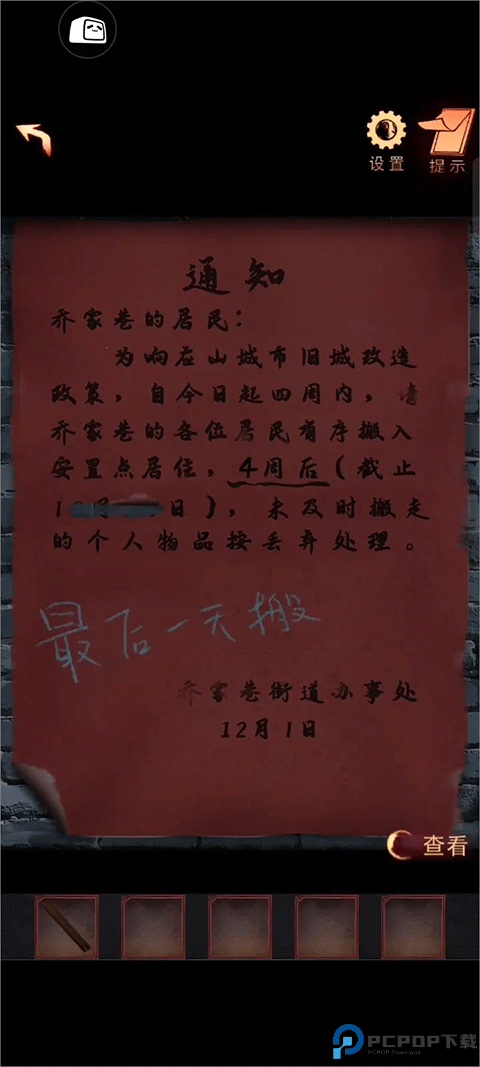 设置
提示
通知
乔家巷的居民：
为响应山城市旧城改造
政策，自今日起四周内，请
乔家巷的各位居民有序搬入
安置点居住，4周后（截止
日），未及时搬走
的个人物品按丢弃处理。
最后一天搬
乔家巷街道办事处
12月1日
查看
PCPOP下载
PCPOP Download